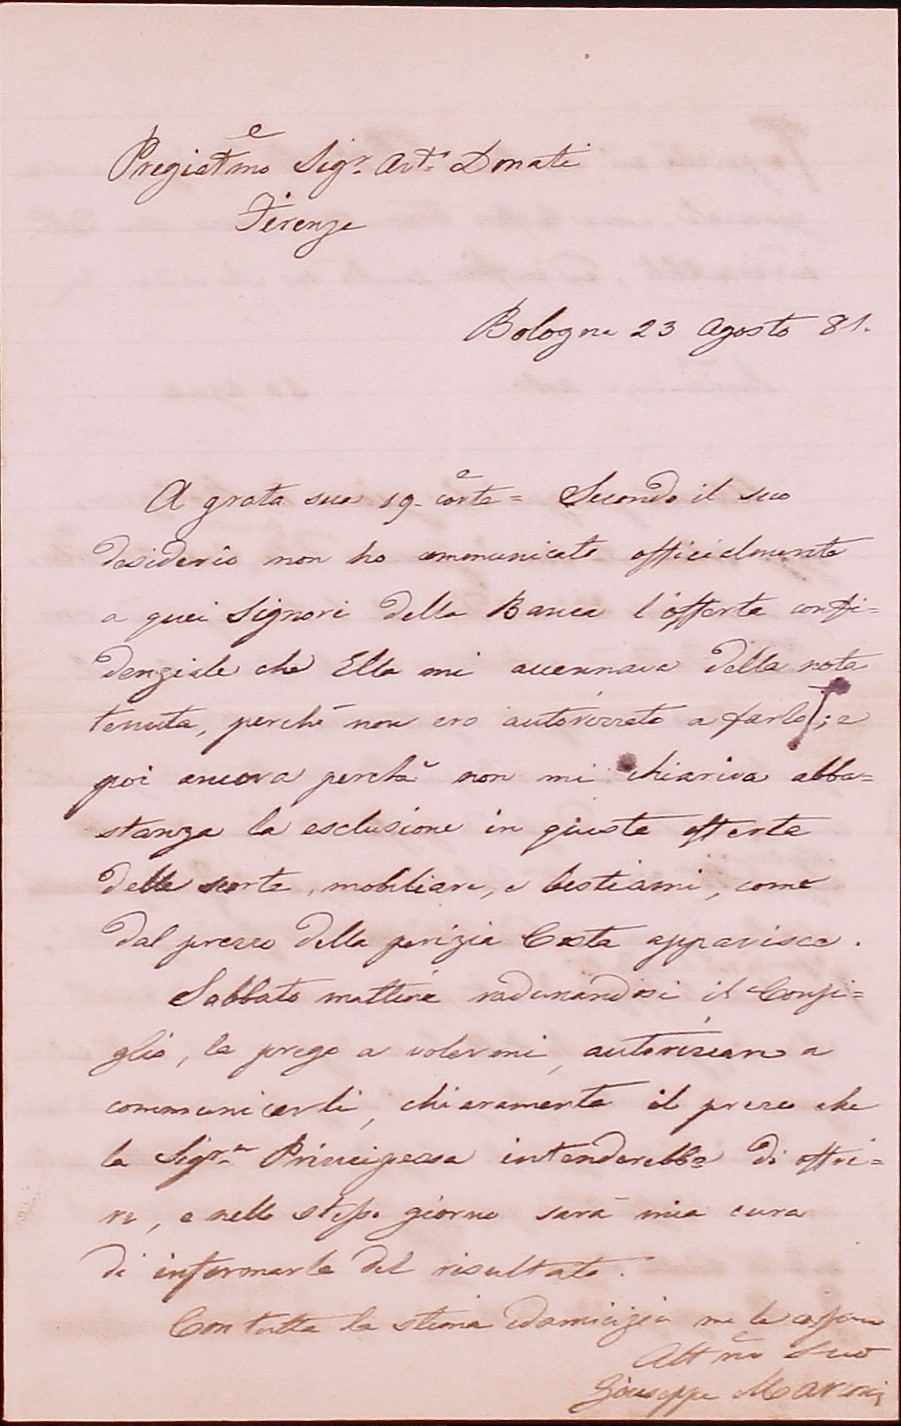 Pregiatmo Sigr. Avt. Donati
Firenze
Bologna 23 Agosto 81.
A grata sua 19 corte = Secondo il suo
desiderio non ho communicato officialmente
a quei Signori della Banca l'offerta confi=
denziale che Ella mi accennava della nota
tenuta, perchè non ero autorizzato a farlo; e
poi ancora perchè non mi chiariva abba=
stanza la esclusione in questa offerta
delle scorte, mobiliare, e bestiami, come
dal prezzo della perizia Costa apparisce.
Sabbato mattina radunandosi il Consi=
glio, la prego a volermi, autorizzare a
communicarli, chiaramente il prezzo che
la Sigra Principessa intenderebbe di offri=
re, e nello stesso giorno sarà mia cura
di informarla del risultato.
Con tutta la stima ed amicizia me le
Attmo Suo
Giuseppe Marconi